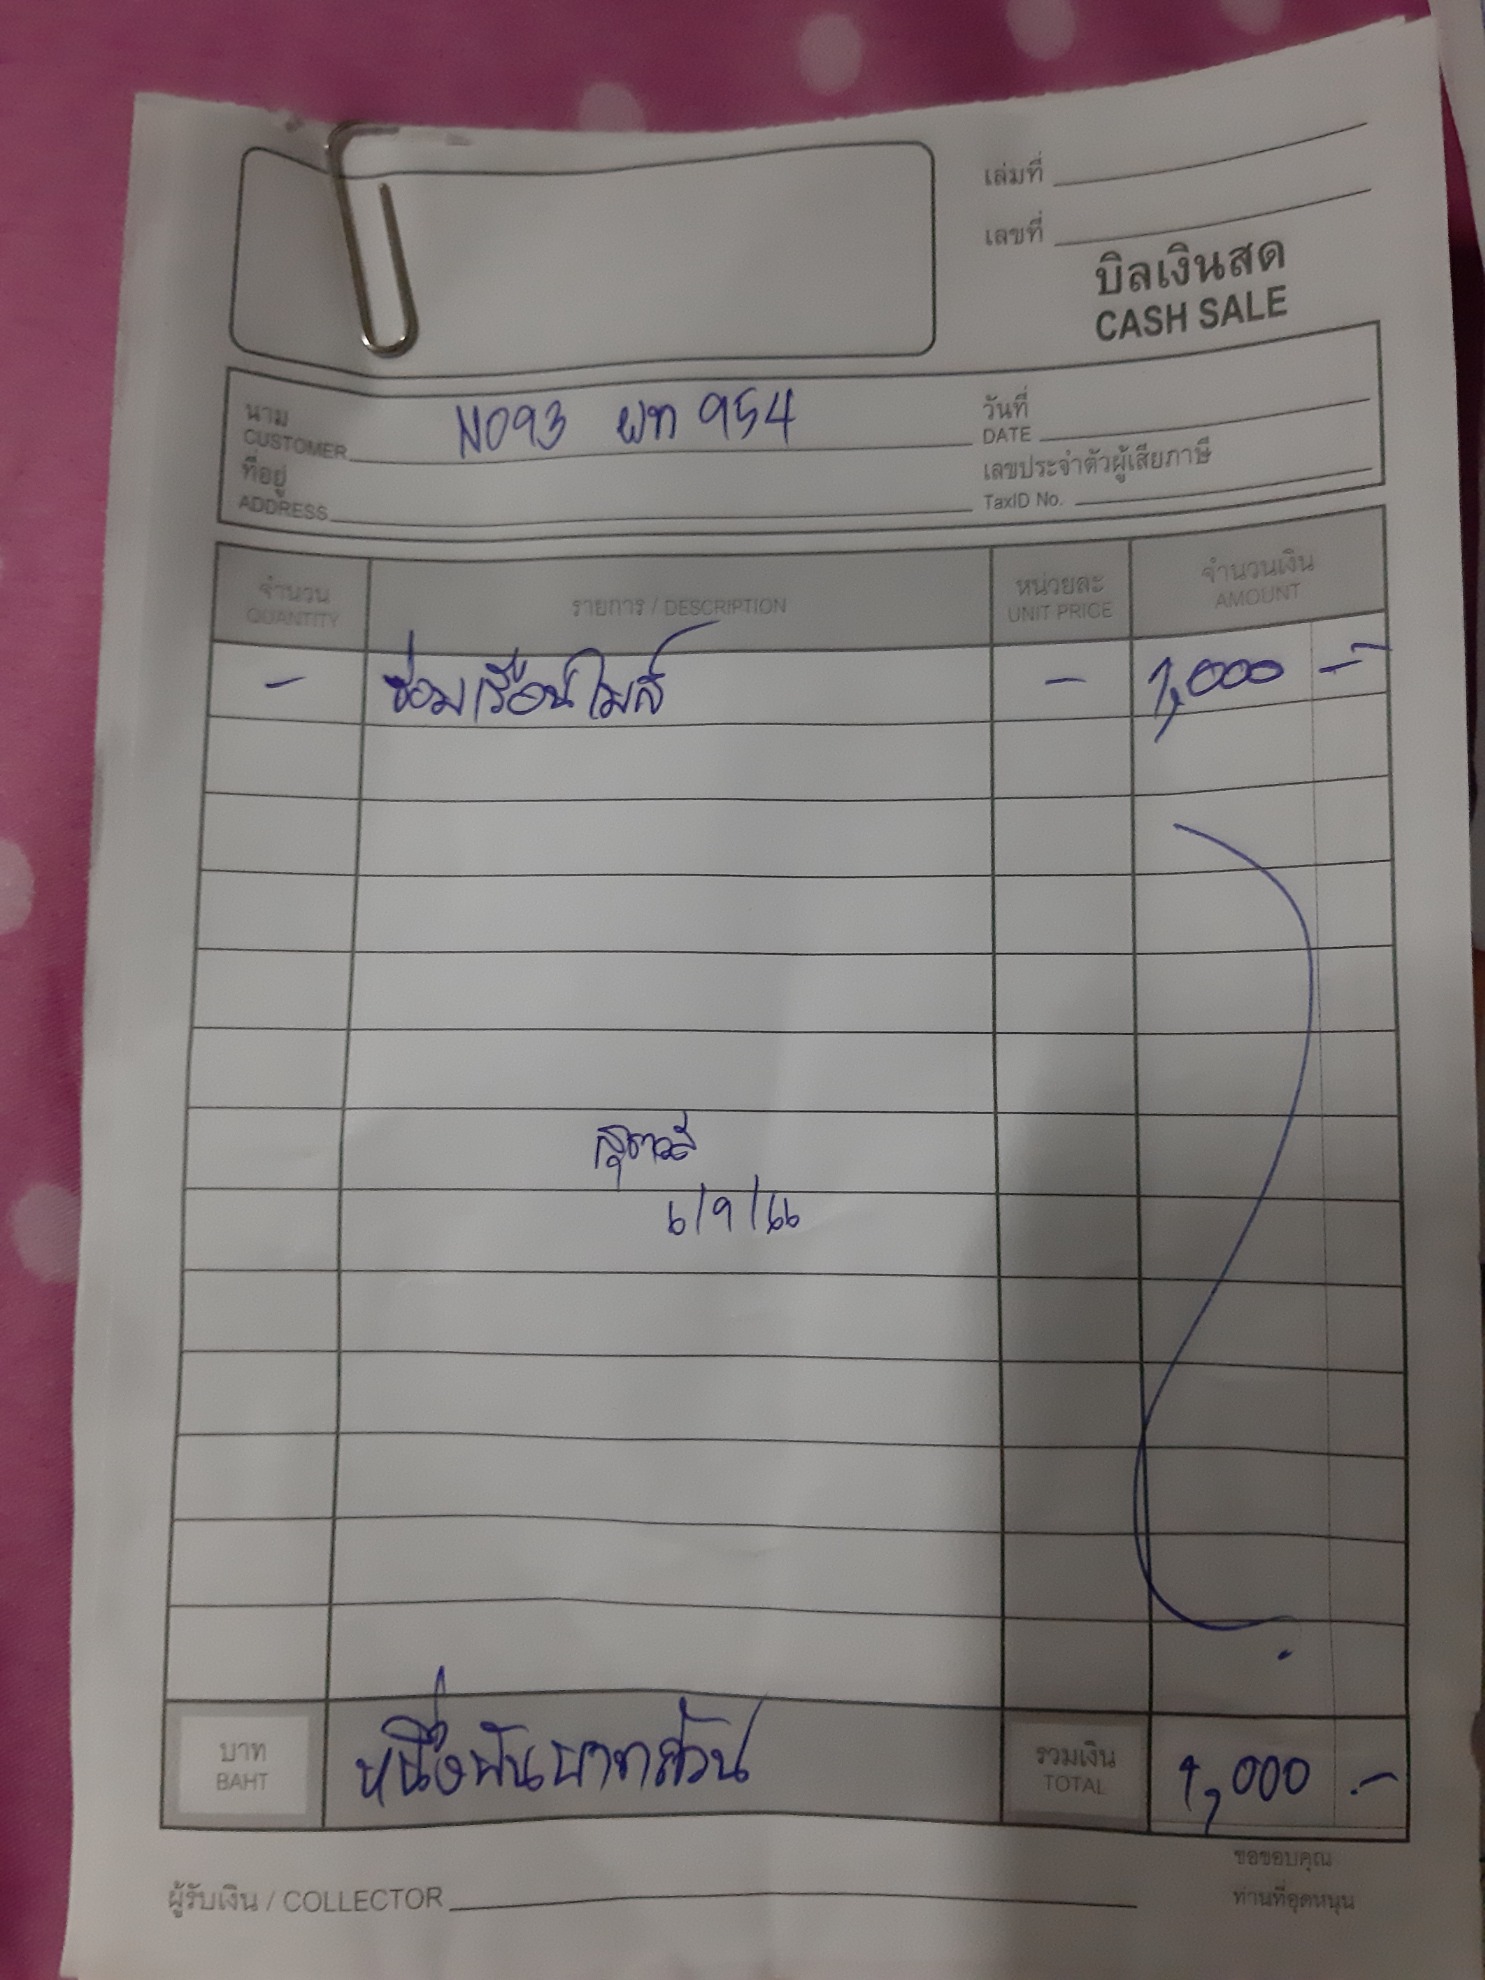 เล่มที่
เลขที่
บิลเงินสด
CASH SALE
นาม
CUSTOMER
N093 ผท 954
วันที่
DATE
ที่อยู่
ADDRESS
เลขประจำตัวผู้เสียภาษี
TaxID No.
จำนวน
QUANTITY
รายการ / DESCRIPTION
หน่วยละ
UNIT PRICE
จำนวนเงิน
AMOUNT
- ซ่อมเรือนไมล์ - 1,000 -
6/9/66
บาท
BAHT
หนึ่งพันบาทถ้วน
รวมเงิน
TOTAL
1,000 .-
ผู้รับเงิน / COLLECTOR
ขอขอบคุณ
ท่านที่อุดหนุน